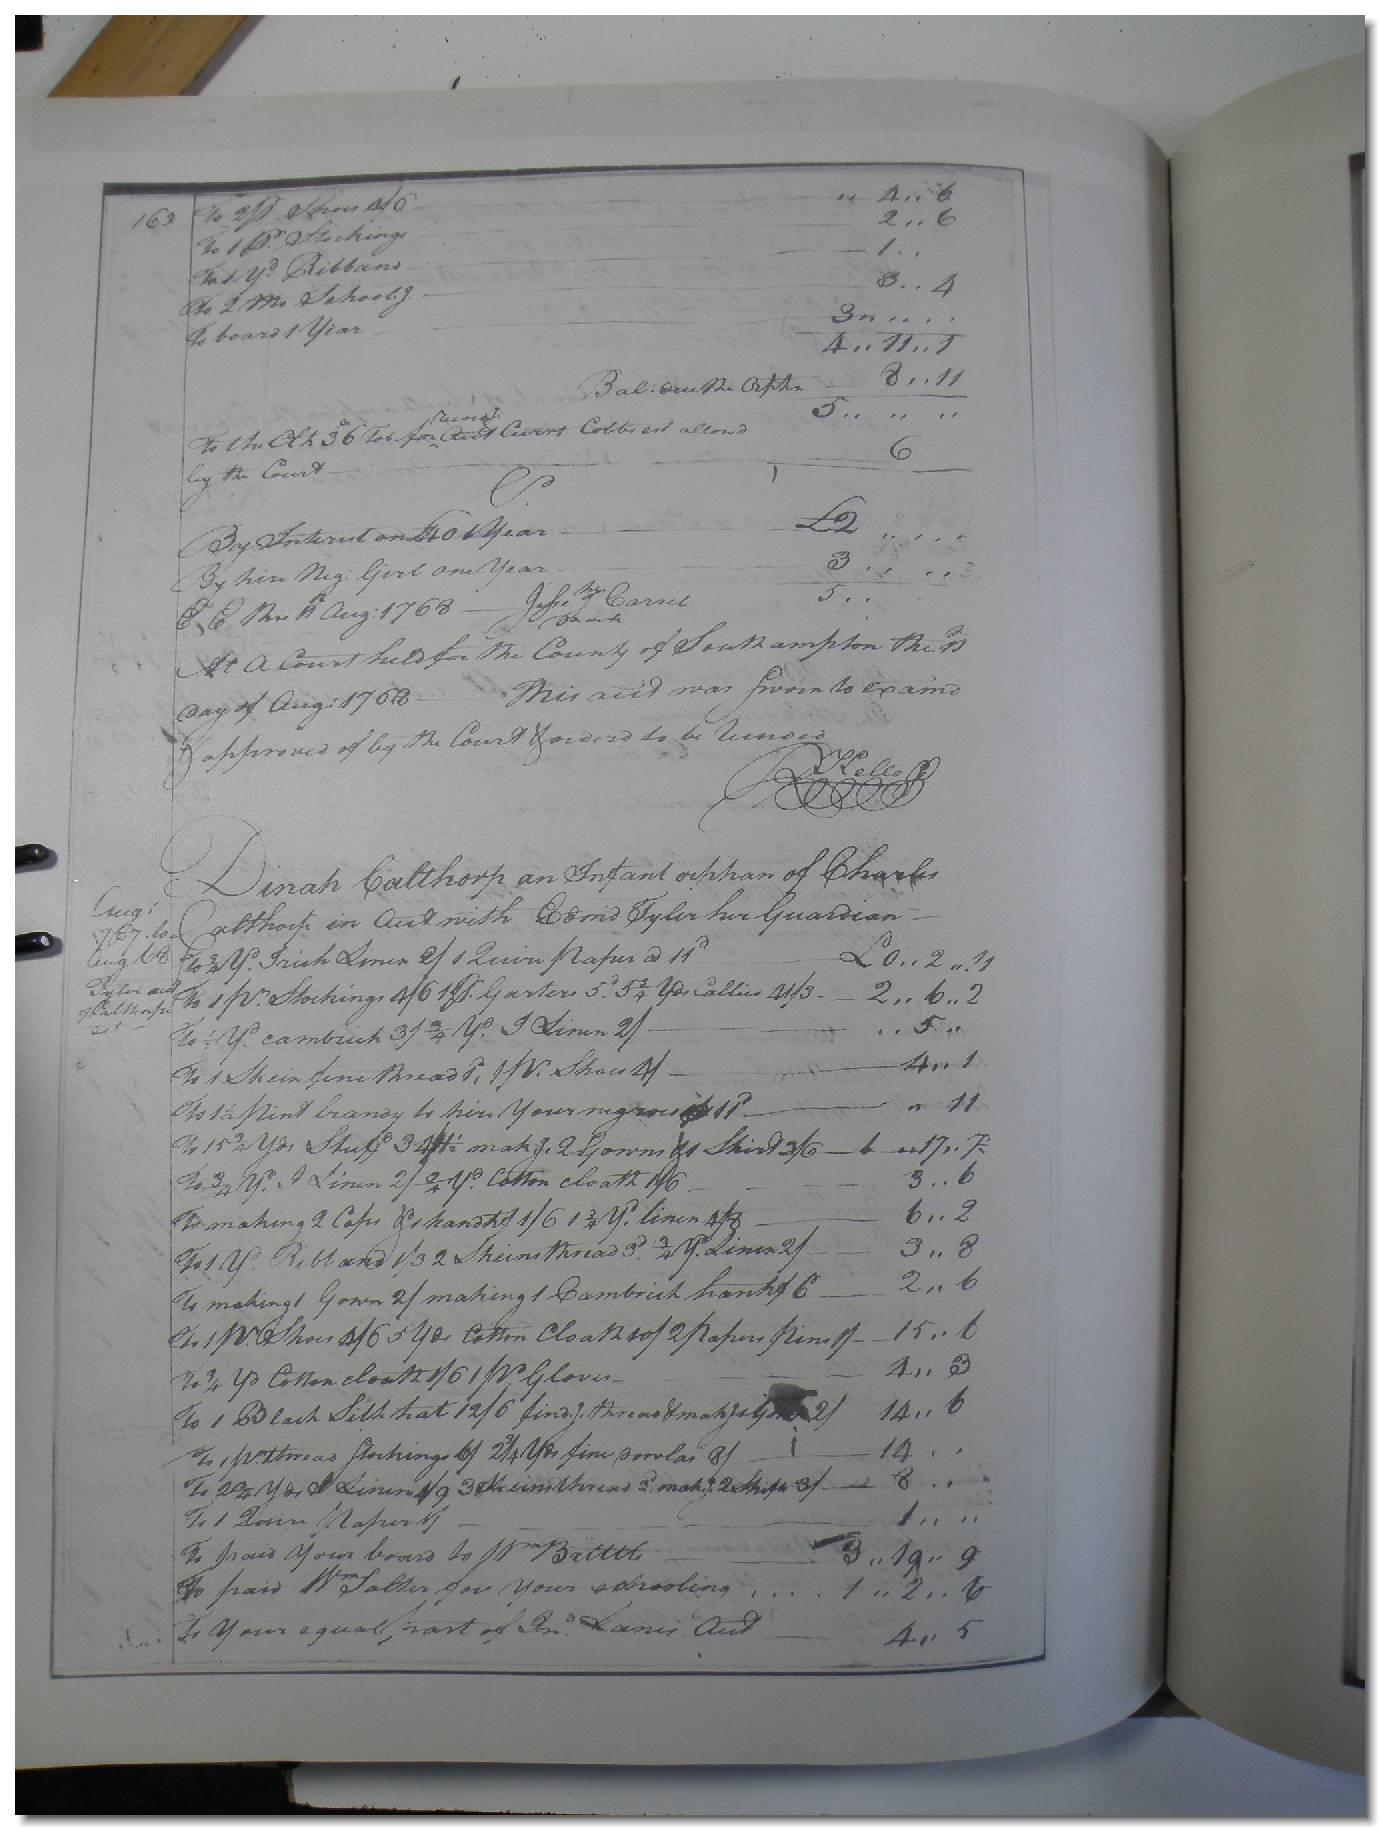 163
To 2 pr Shoes 4/6 " 4 .. 6
To 1 Pr. Stockings 2 .. 6
To 1 Yd. Ribband 1 ..
To 2 Mo School.g 3 .. 4
To board 1 Year 3 " .. ..
4 .. 11 .. 1
Bal. due the Orphn 8 .. 11
5 .. " .. "
To the Clk 36 Tob. for Acct Curnt allowd
by the Court 6
By Interest on £40 1 Year £2 .. ..
By hire Neg: Girl one Year 3 .. ..
5 ..
E E this 11th Aug: 1768 his Carrel
mark
At A Court held for the County of Southampton the 11th
day of Aug: 1768 This acct was sworn to examd
& approved of by the Court & orderd to be recorded
R Kello
Dinah Calthorp an Infant orphan of Charles
Calthorp in Acct with Edmd Tyler her Guardian
Aug:
1767 to
Aug 68
Tyler acct
of Calthorps
To 3/4 Yd. Irish Linen 2/ 1 Quire Paper @ 11d £0 .. 2 .. 11
To 1 pr. Stockings 4/6 1 pr. Garters 5d. 5 1/4 Yds Callico 4/3 2 .. 6 .. 2
To Yd. cambrick 3/ 3/4 Yd. I Linen 2/ .. 5 "
To 1 Skein fine thread 1d, 1 pr. Shoes 4/ 4 .. 1
To 1 1/2 pint brandy to hire Your negroes 11d " 11
To 15 3/4 Yds Stuff makg. 2 Gowns & 1 Shirt 3/6 17 .. 7 1/2
To 3/4 Yd. I Linen 2/ 3/4 Yd. Cotton cloath 1/6 3 .. 6
To making 2 Caps & 1 handkf 1/6 1 3/4 Yd. linen 4/8 6 .. 2
To 1 Yd. Ribband 1/3 2 Skeins thread 3d. 3/4 Yd. Linen 2/ 3 .. 8
To making 1 Gown 2/ making 1 Cambrick hankf 6d 2 .. 6
To 1 Pr. Shoes 4/6 5 Yds Cotton Cloath 10/ 2 Papers Pins 1/ 15 .. 6
To 3/4 Yd Cotton cloath 1/6 1 pr. Gloves 4 .. 3
To 1 Black Silk hat 12/6 find.g thread & makg 1 Gown 2/ 14 .. 6
To 1 pr thread Stockings 6/ 2 3/4 Yds fine dowlas 8/ 14 ..
To 2 3/4 Yds I Linen 1/9 3 Skeins thread 3d makg. 2 Shifts 3/ 8 ..
To 1 Quire Paper 1/ 1 .. "
To paid Your board to Wm Brittle 3 .. 19 .. 9
To paid Wm Salter for Your schooling .... 1 .. 2 .. 6
To Your equal part of Jno. Lanes Acct 4 .. 5